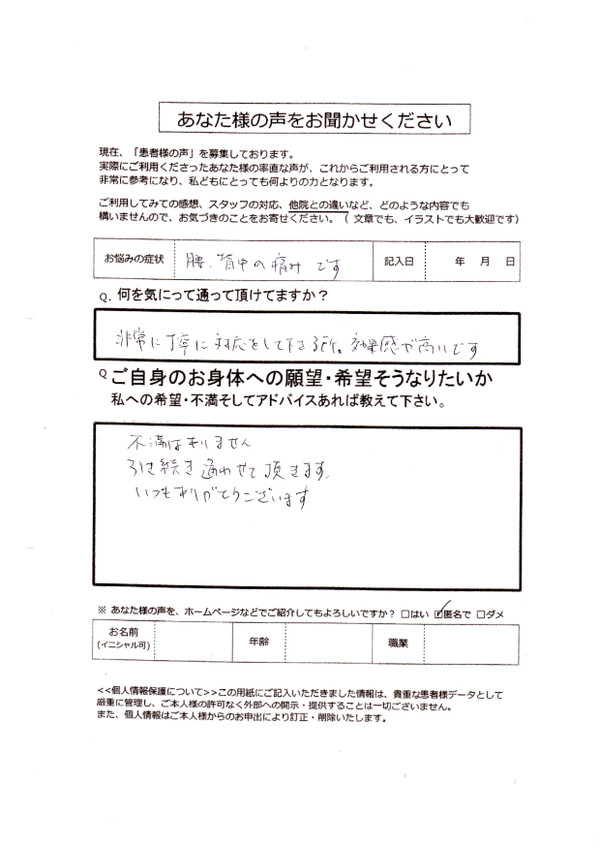 あなた様の声をお聞かせください
現在、「患者様の声」を募集しております。
実際にご利用くださったあなた様の率直な声が、これからご利用される方にとって
非常に参考になり、私どもにとっても何よりの力となります。
ご利用してみての感想、スタッフの対応、他院との違いなど、どのような内容でも
構いませんので、お気づきのことをお寄せください。（ 文章でも、イラストでも大歓迎です）
お悩みの症状 腰、背中の痛みです 記入日 年 月 日
Q. 何を気にって通って頂けてますか？
非常に丁寧に対応をして下さる所。効果感が高いです
Q ご自身のお身体への願望・希望そうなりたいか
私への希望・不満そしてアドバイスあれば教えて下さい。
不満はありません
引き続き通わせて頂きます。
いつもありがとうございます
※ あなた様の声を、ホームページなどでご紹介してもよろしいですか？ □はい ☑匿名で □ダメ
お名前 年齢 職業
(イニシャル可)
<<個人情報保護について>>この用紙にご記入いただきました情報は、貴重な患者様データとして
厳重に管理し、ご本人様の許可なく外部への開示・提供することは一切ございません。
また、個人情報はご本人様からのお申出により訂正・削除いたします。